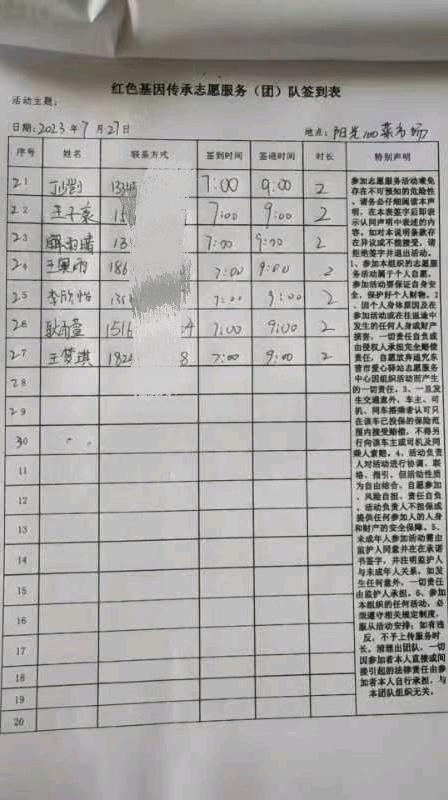 红色基因传承志愿服务（团）队签到表
活动主题：
日期：2023年7月27日 地点：阳光100菜市场
序号 姓名 联系方式 签到时间 签退时间 时长 特别声明
21 7:00 9:00 2
22 王子豪 15 7:00 9:00 2
23 13 7:00 9:00 2
24 186 7:00 9:00 2
25 李欣怡 135 7:00 9:00 2
26 耿雨萱 1516 4 7:00 9:00 2
27 王梦琪 182 8 7:00 9:00 2
28
29
30
11
12
13
14
15
16
17
18
19
20
参加志愿服务活动难免
存在不可预知的危险性
，请务必仔细阅读本声
明，在本表签字后即表
示认同声明中表述的内
容。如对本说明条款存
在异议或不能接受，请
拒绝签字并退出活动。
1、参加本组织的志愿服
务活动属于个人自愿，
参加活动要保证自身安
全，保护好个人财物。2
、因个人身体原因及在
参加活动或在往返途中
发生的任何人身或财产
损害，一切责任自负或
由侵权人承担完全赔偿
责任，自愿放弃追究东
营市爱心驿站志愿服务
中心因组织活动而产生
的一切责任。3、一旦发
生交通意外，车主、司
机、同车搭乘者认可只
在该车已投保的保险范
围内接受赔偿，不得另
行向该车主或司机及同
乘人索赔。4、活动负责
人对活动进行协调、联
络、指引，但活动性质
为自由结合、自愿参加
、风险自担、责任自负
，活动负责人不担保或
提供任何参加人的人身
和财产的安全保障。5、
未成年人参加活动需由
监护人同意并在在承诺
书签字，并注明监护人
与未成年人关系，如发
生任何意外，一切责任
由监护人承担。6、参加
本组织的任何活动，必
须遵守相关规定制度，
服从活动安排；如有违
反，不予上传服务时
长，清理出团队，一切
因参加者本人直接或间
接引起的法律责任由参
加者本人自行承担，与
本团队组织无关。